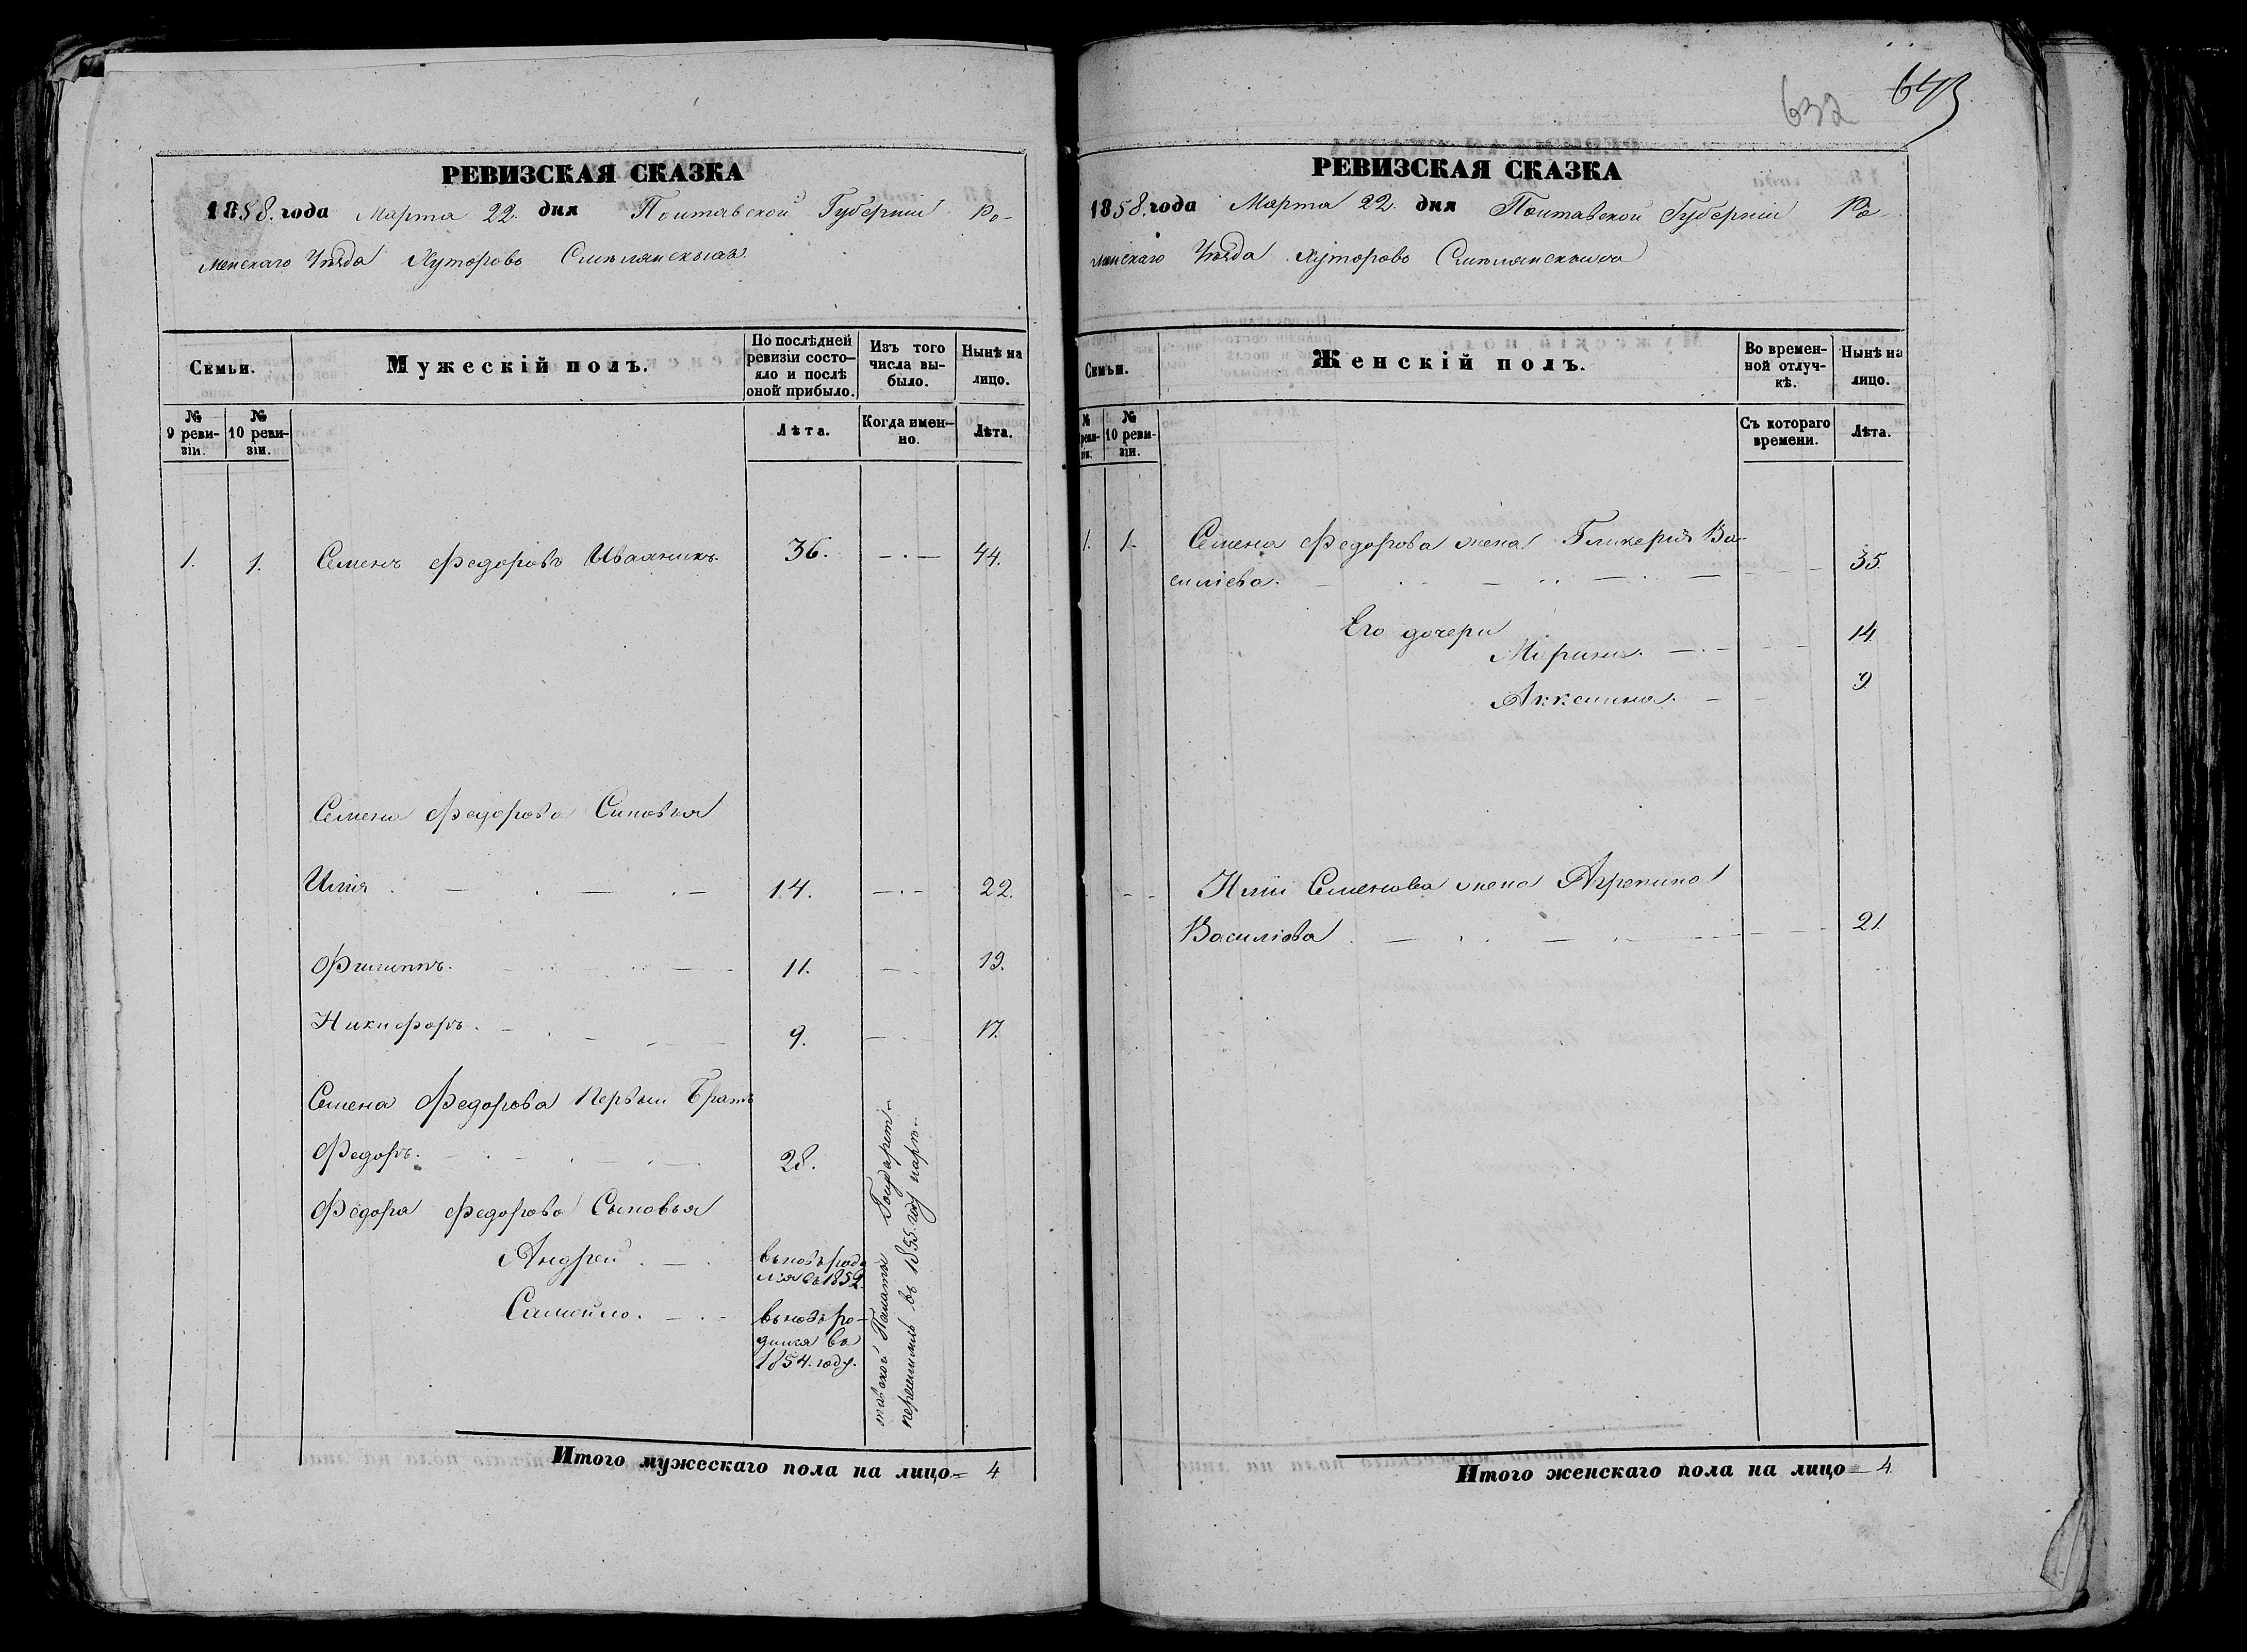 632 643
РЕВИЗСКАЯ СКАЗКА
1858. года Марта 22. дня Полтавской Губерніи Ро-
менскаго Уѣзда Хуторовъ Смѣлянскихъ
Семьи.
Мужескій полъ.
По послѣдней
ревизіи состо-
яло и послѣ
оной прибыло.
Изъ того
числа вы-
было.
Нынѣ на
лицо.
№
9 реви-
зіи.
№
10 реви-
зіи.
Лѣта.
Когда имен-
но.
Лѣта.
1. 1. Семенъ Федоровъ 36. 44.
Семена Федорова Синовья
Илія 14. 22.
Филиппъ. 11. 19.
Никифоръ. 9. 17.
Семена Федорова Первый Братъ
Федоръ. 28.
Федора Федорова Сыновья
Андрей.
вновь роди
лся въ 1852.
Самойло.
вновь ро-
дился въ
1854. году.
Палаты
въ 1855. году
Итого мужескаго пола на лицо= 4
РЕВИЗСКАЯ СКАЗКА
1858. года Марта 22. дня Полтавской Губерніи Ро-
менскаго Уѣзда Хуторовъ Смѣлянскихъ
Семьи.
Женскій полъ.
Во времен-
ной отлуч-
кѣ.
Нынѣ на
лицо.
№
реви-
зіи.
№
10 реви-
зіи.
Съ котораго
времени.
Лѣта.
1. 1. Семена Федорова жена Гликерія Ва-
силіева. 35.
Его дочери
Мірина. 14.
Акксинна. 9.
Иліи Семенова жена Агрепина
Василіова 21.
Итого женскаго пола на лицо= 4.